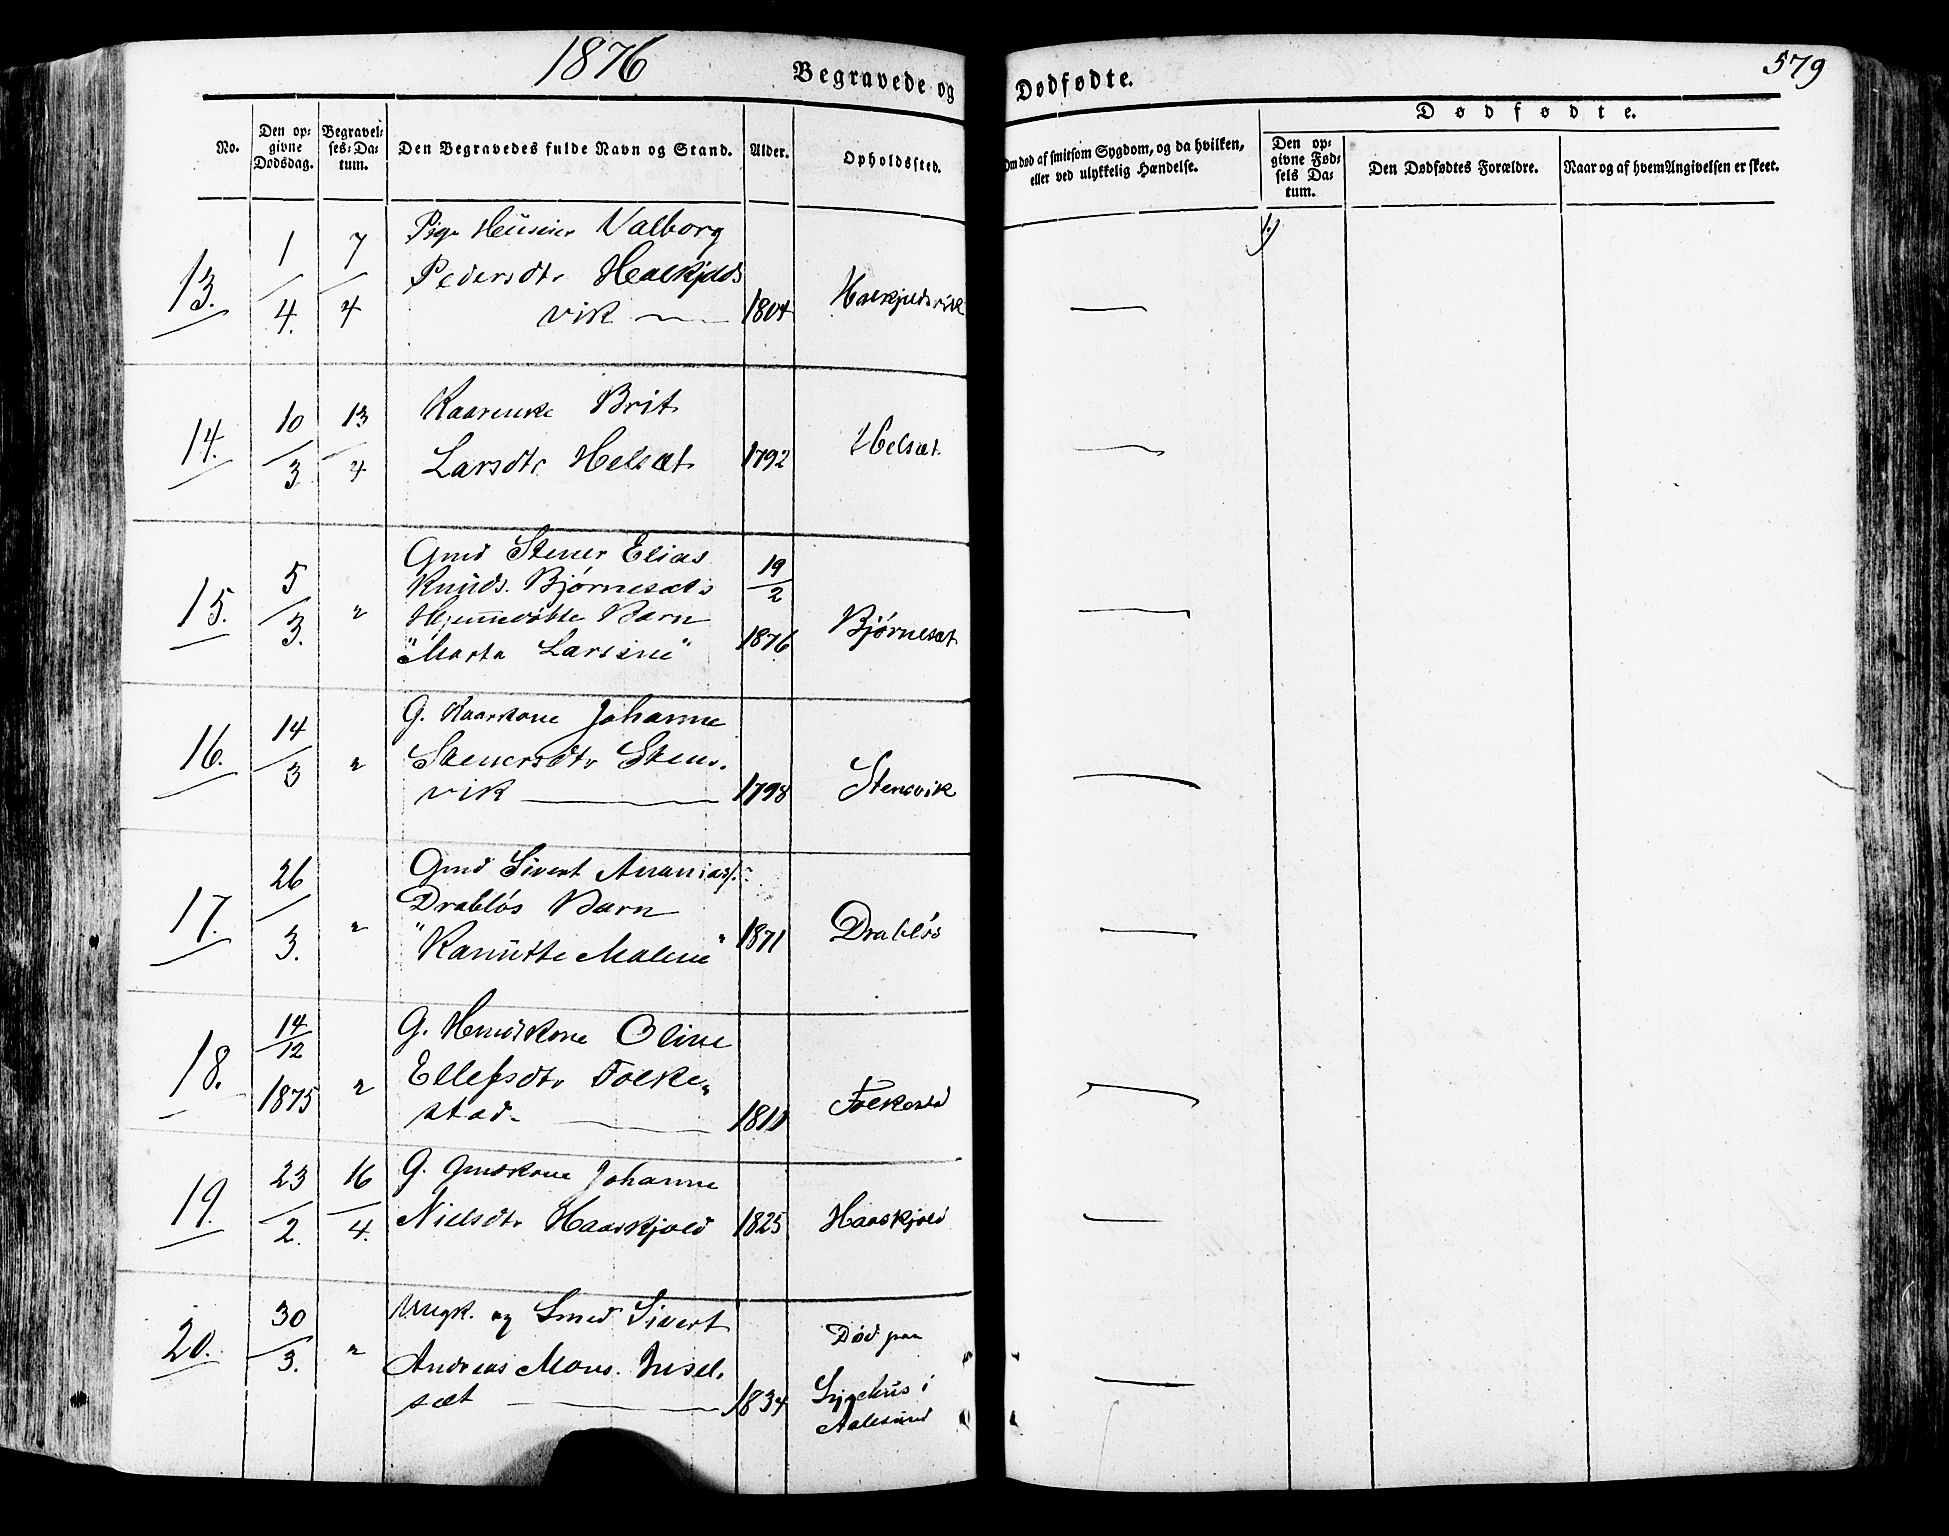 1876
579
Begravede og Dødfødte.
No.
Den opgivne Dødsdag.
Begravelses-Datum.
Den Begravedes fulde Navn og Stand.
Alder.
Opholdssted.
Om død af smitsom Sygdom, og da hvilken, eller ved ulykkelig Hændelse.
Dødfødte.
Den opgivne Fødsels Datum.
Den Dødfødtes Forældre.
Naar og af hvem Angivelsen er skeet.
13. 1/4. 7/4 Pige Valborg
Pedersdtr
vik — 1804
14. 10/3 13/4 Brit
Larsdtr Helsæt 1792 Helsæt
15. 5/3. " Gmd Stener Elias 19/2
Knuds. Bjørnesæts
Hjemmedøbte Barn
"Marta Larsine" 1876 Bjørnesæt
16. 14/3 " G. Kaarkone Johanne
Stenersdtr Stens-
vik — 1798 Stensvik
17. 26/3. " Gmd Sivert Ananias/.
Drabløs Barn
"Kanutte Malene" 1871 Drabløs
18. 14/12 1875 " G. Oline
Ellefsdtr Folke-
stad — Folkestad
19. 23/2. 16/4. G. Gmdskone Johanne
Nielsdtr Haaskjold 1825 Haaskjold
20. 30/3. " Ungk. og Smed Sivert
Andreas Mons. Insel-
sæt — 1834
Død paa
Sygehus i
Aalesund